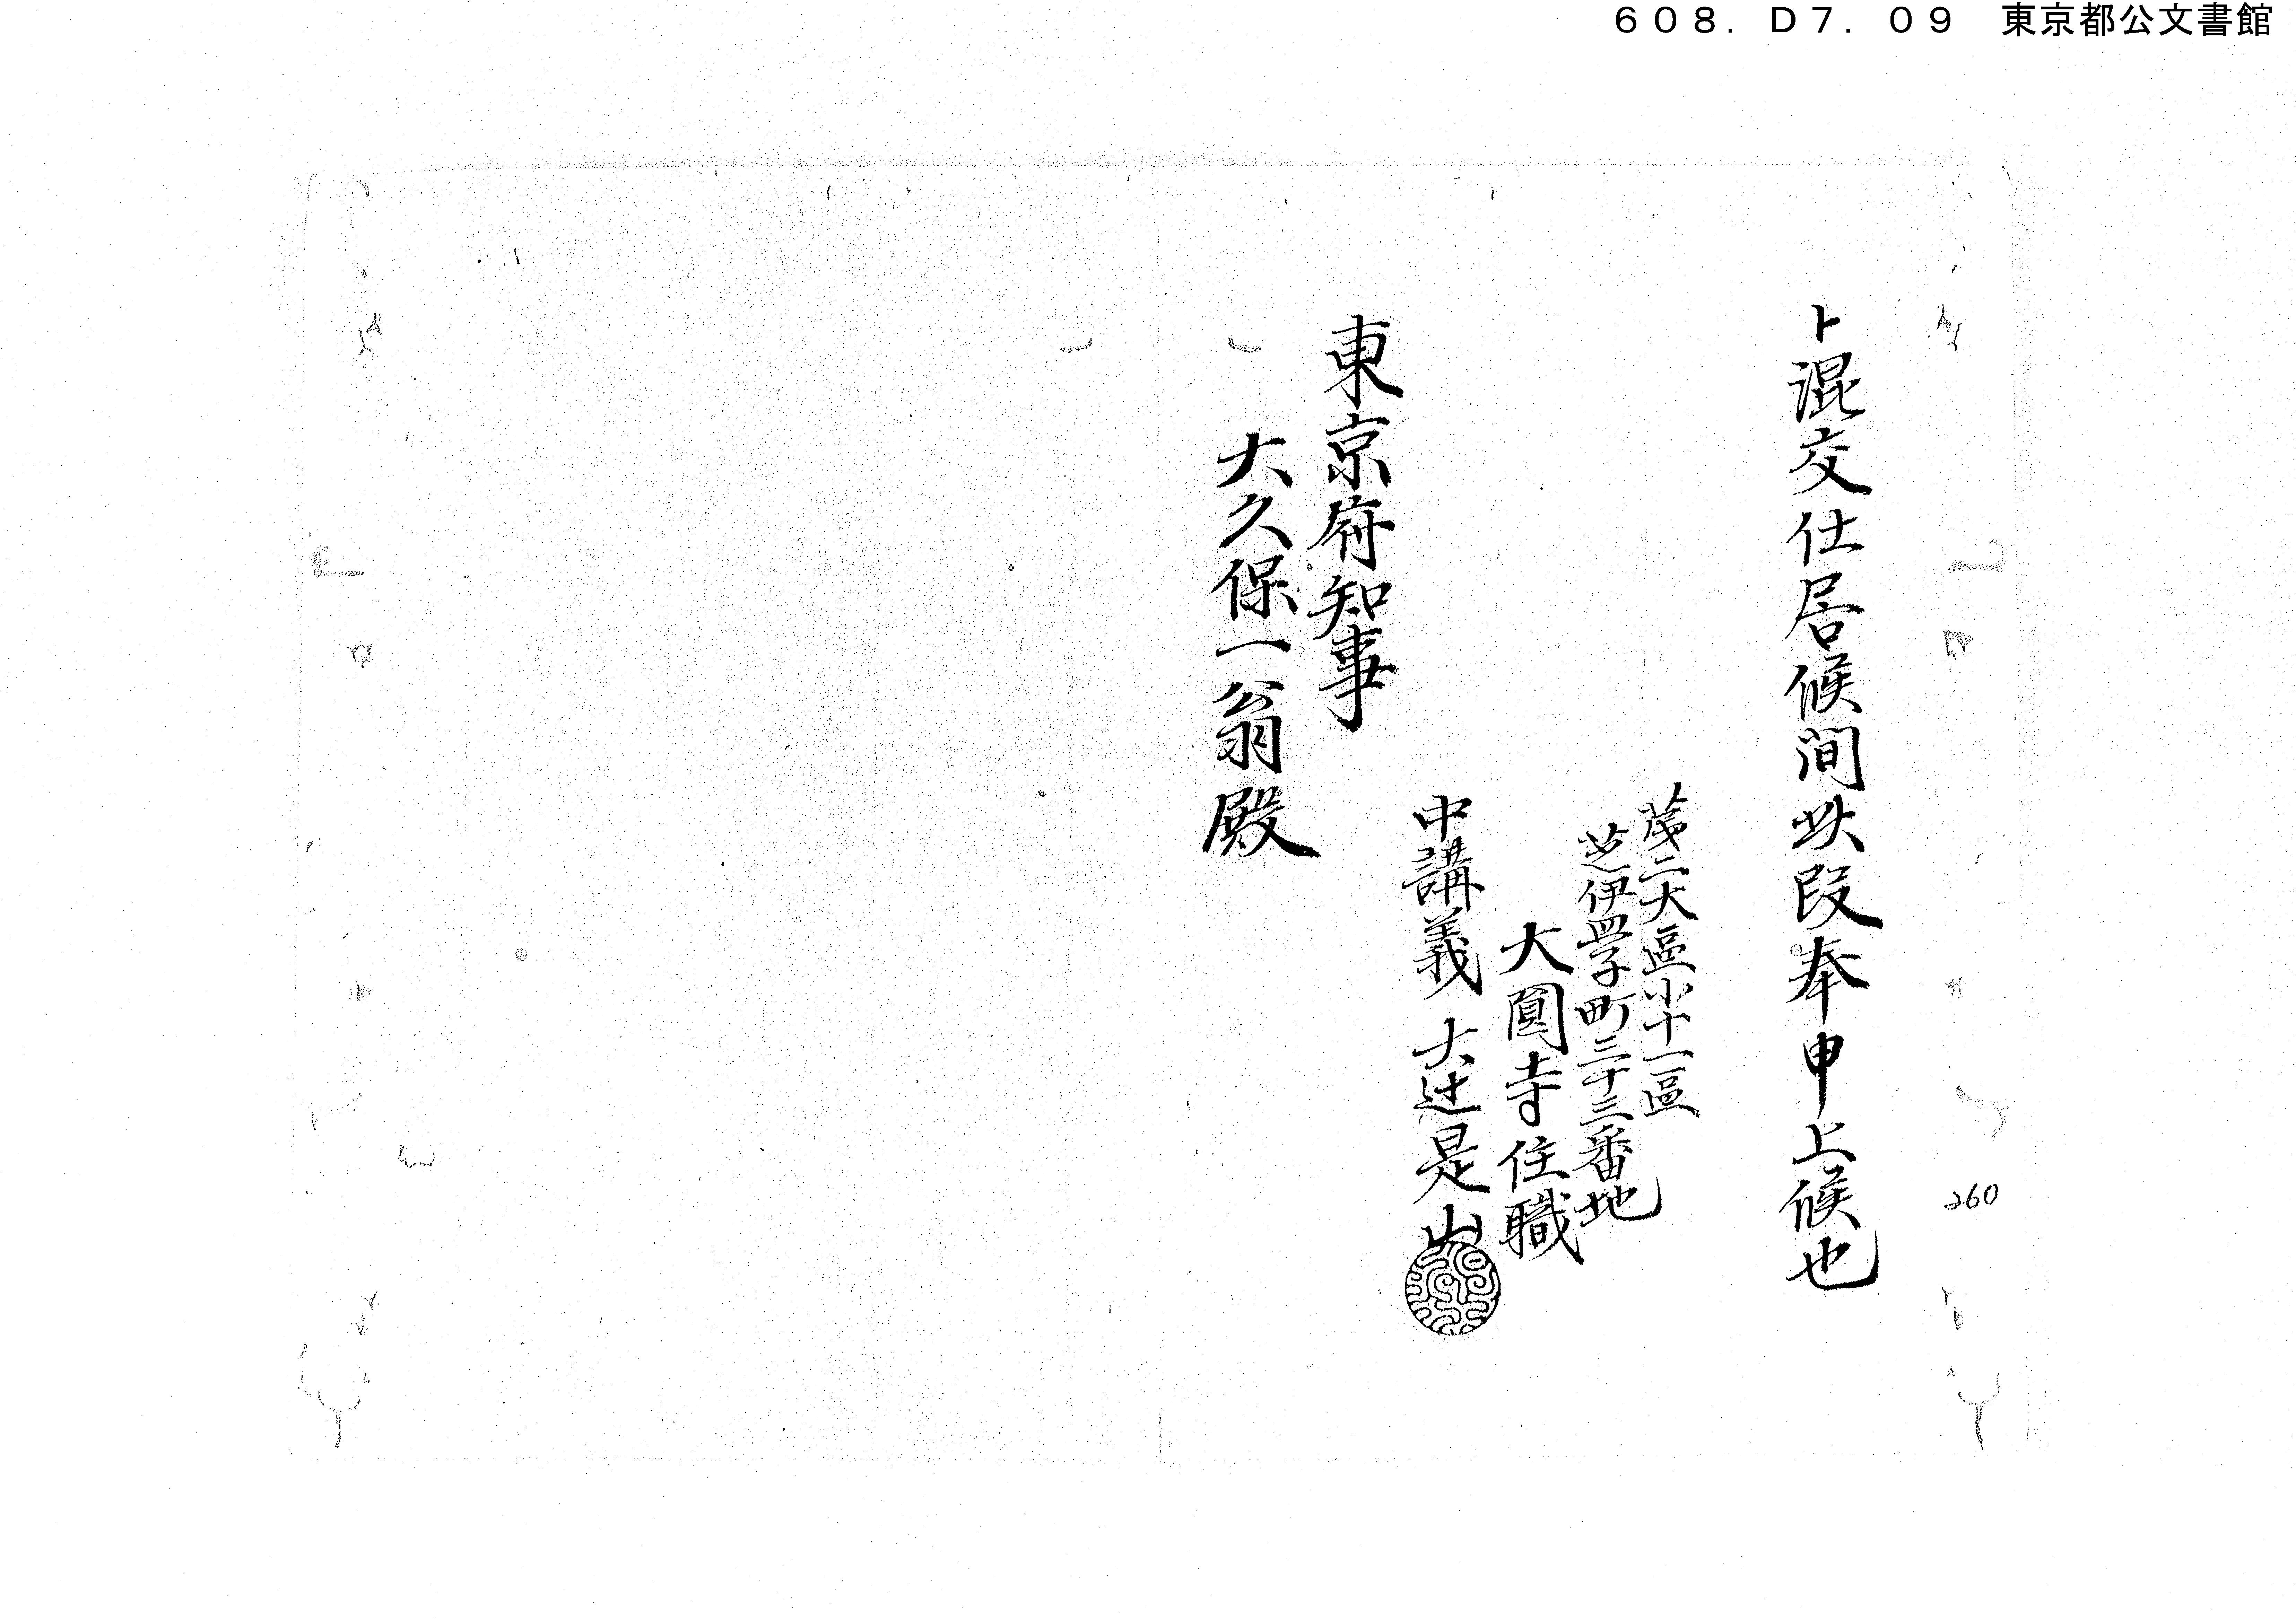 ６０８．Ｄ７．０９　東京都公文書館
ト混交仕居候間此段奉申上候也
260
第二大區小十一區
芝伊皿子町三十三番地
大圓寺住職
中講義 大辻是山
東京府知事
大久保一翁殿